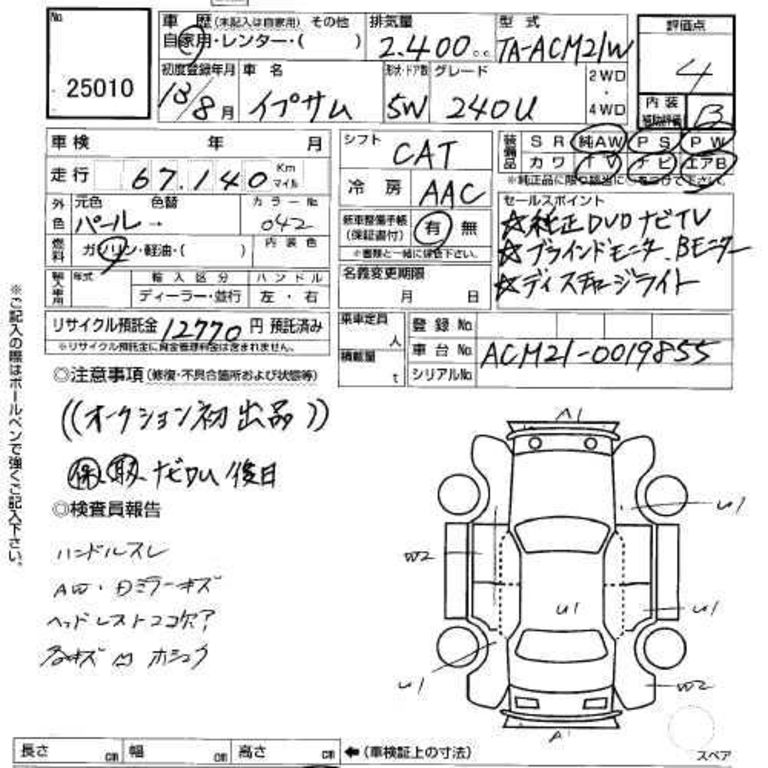 No
25010
車歴(未記入は自家用) その他
自家用・レンター・( )
排気量
2.400cc
型式
TA-ACM21W
評価点
4
初度登録年月
13/8月
車名
イプサム
形状・ドア数
5W
グレード
240U
2WD
・
4WD
内装
補助評価
B
車検 年 月
シフト
CAT
装備品
SR 純AW PS PW
カワ TV ナビ エアB
※純正品に限り該当に○をつけて下さい。
走行 67.140 Km マイル
冷房
AAC
外色
元色 色替
パール→
カラーNo
042
セールスポイント
☆純正DVDナビTV
☆ブラインドモニター、Bモニター
☆ディスチャージライト
燃料
ガソリン・軽油・( )
内装色
新車整備手帳
(保証書付)
有 無
※書類と一緒に保管下さい。
輸入車用
年式
輸入区分
ハンドル
ディーラー・並行
左・右
名義変更期限
月 日
リサイクル預託金 12770 円 預託済み
※リサイクル預託金に資金管理料金は含まれません。
乗車定員
人
積載量
t
登録No.
車台No. ACM21-0019855
シリアルNo.
◎注意事項(修復・不具合箇所および状態等)
((オークション初出品))
保、取、ナビDU後日
◎検査員報告
ハンドルスレ
AW・Dミラーキズ
ヘッドレスト2コ欠?
各キズ凹ホシュウ
A1
U1
W2
U1
U1
U1
W2
A1
スペア
長さ cm 幅 cm 高さ cm ←(車検証上の寸法)
※ご記入の際はボールペンで強くご記入下さい。